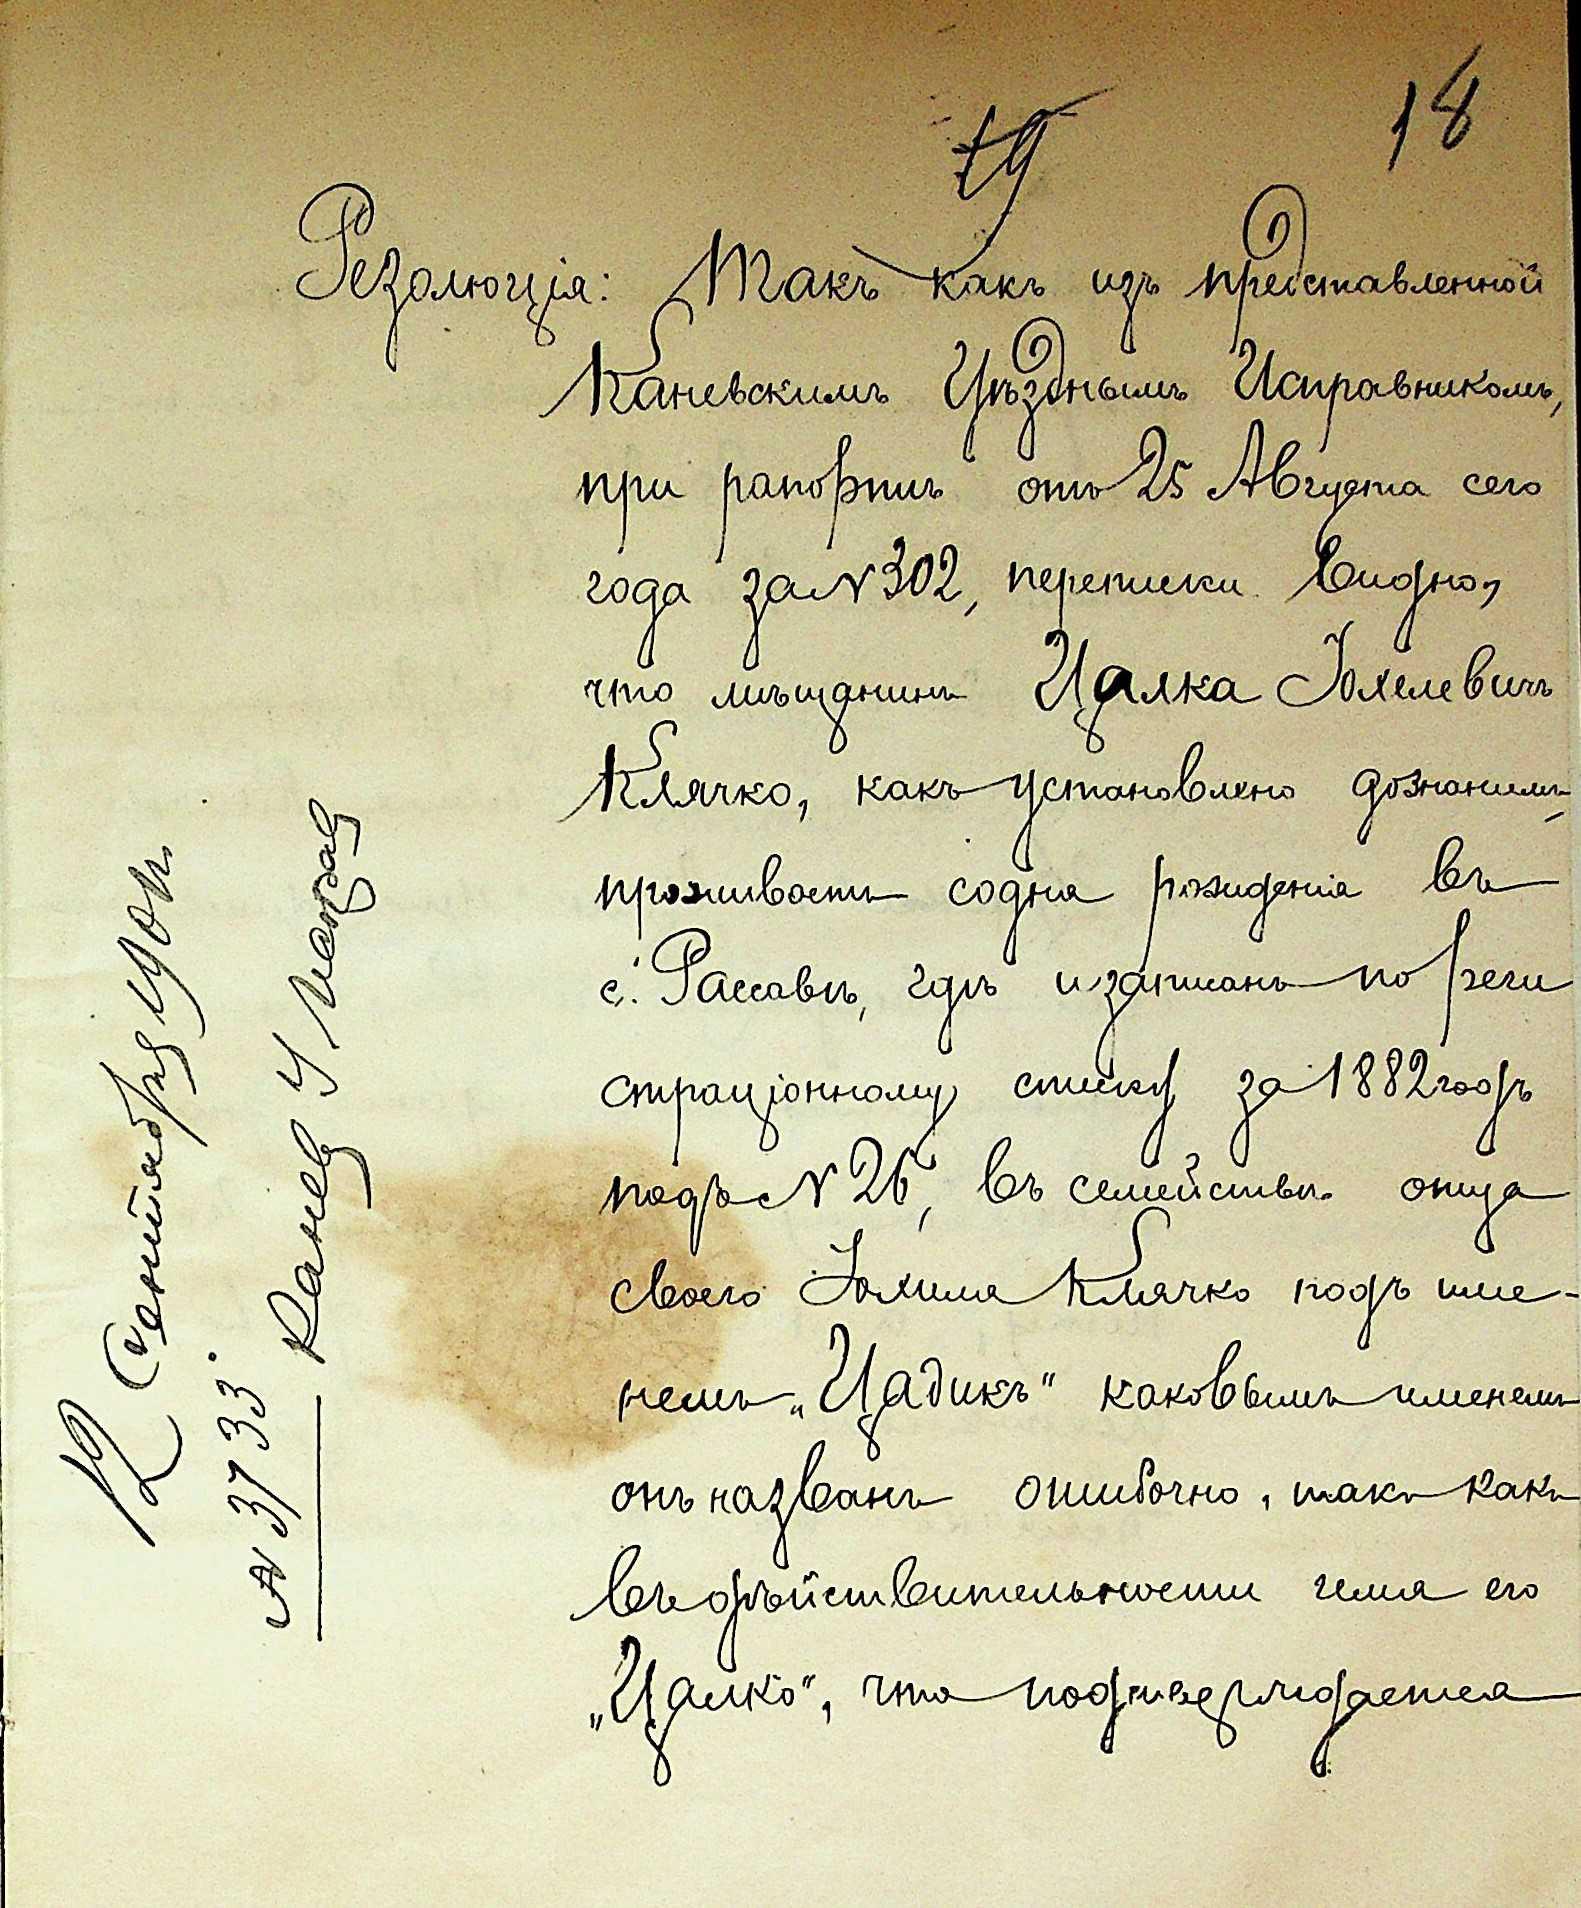 19 18
Резолюція: Такъ какъ изъ представленной
Каневскимъ Уѣзднымъ Исправникомъ,
при рапортѣ отъ 25 Августа сего
года за № 302, переписки видно,
что мѣщанинъ Цалка Іохелевичъ
Клячко, какъ установлено дознаніемъ,
проживаетъ со дня рожденія въ
с. Рассавѣ, гдѣ и записанъ по реги
страціонному списку за 1882 годъ
подъ № 26, въ семействѣ отца
своего Іохиля Клячко подъ име-
немъ „Цадикъ" каковымъ именемъ
онъ названъ ошибочно, такъ какъ
въ дѣйствительности имя его
„Цалко", что подтверждается
12 Сентября 190
№ 3733. Канев У Исправ